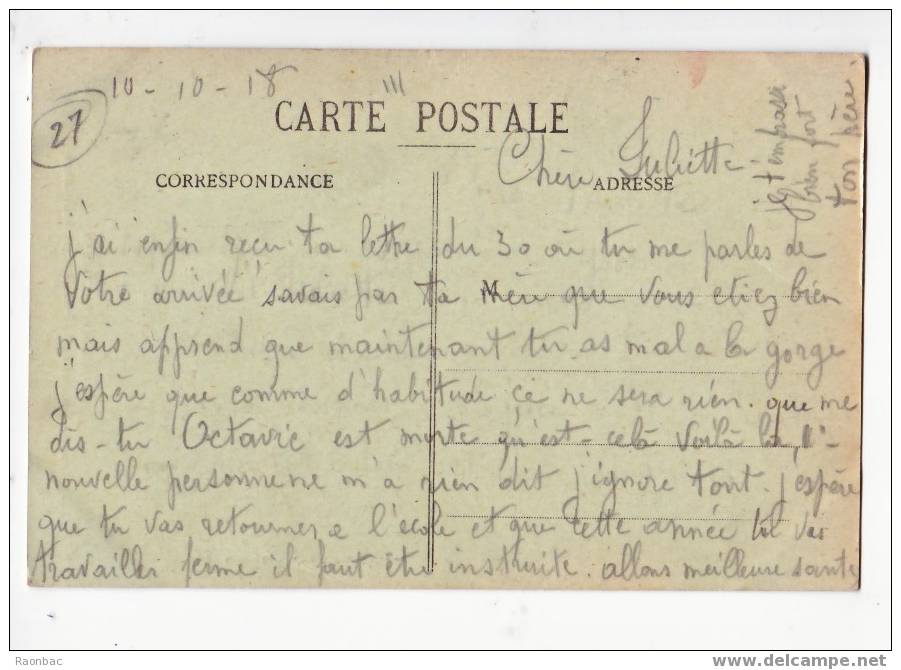 10 - 10 - 18
27
CARTE POSTALE
CORRESPONDANCE
ADRESSE
Chère Juliette
j'ai enfin reçu ta lettre du 30 où tu me parles de
votre arrivée savais par ta Mère que vous etiez bien
mais apprend que maintenant tu as mal a la gorge
j'espère que comme d'habitude ce ne sera rien. que me
dis-tu Octavie est morte qu'est-celà voilà la 1è-
nouvelle personne ne m'a rien dit j'ignore tout. j'espère
que tu vas retourner a l'école et que cette année tu vas
travailler ferme il faut être instruite. allons meilleure santé
je t'embrasse
bien fort
ton père.
Raonbac
www.delcampe.net